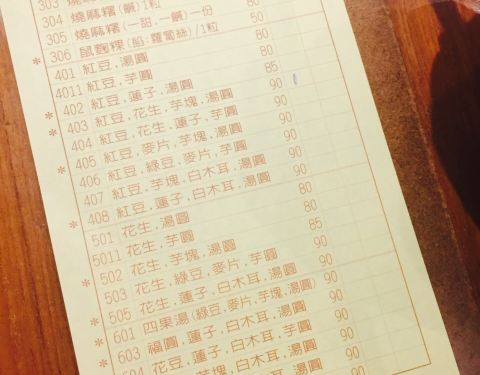 304 燒麻糬(鹹)1粒
305 燒麻糬(一甜.一鹹)一份 80
* 306 鼠麴粿(餡:蘿蔔絲)/1粒 50
401 紅豆,湯圓 80
4011 紅豆,芋圓 80
* 402 紅豆,蓮子,湯圓 85
* 403 紅豆,花生,芋塊,湯圓 90
404 紅豆,花生,蓮子,芋圓 90
* 405 紅豆,麥片,芋塊,湯圓 90
406 紅豆,綠豆,麥片,芋圓 90
407 紅豆,芋塊,白木耳,湯圓 90
* 408 紅豆,蓮子,白木耳,湯圓 90
501 花生,湯圓 80
5011 花生,芋圓 80
* 502 花生,芋塊,湯圓 85
503 花生,綠豆,麥片,芋圓 90
* 505 花生,蓮子,白木耳,湯圓 90
* 601 四果湯(綠豆,麥片,芋塊,湯圓) 90
* 603 福圓,蓮子,白木耳,湯圓 90
花豆,蓮子,白木耳,芋圓 90